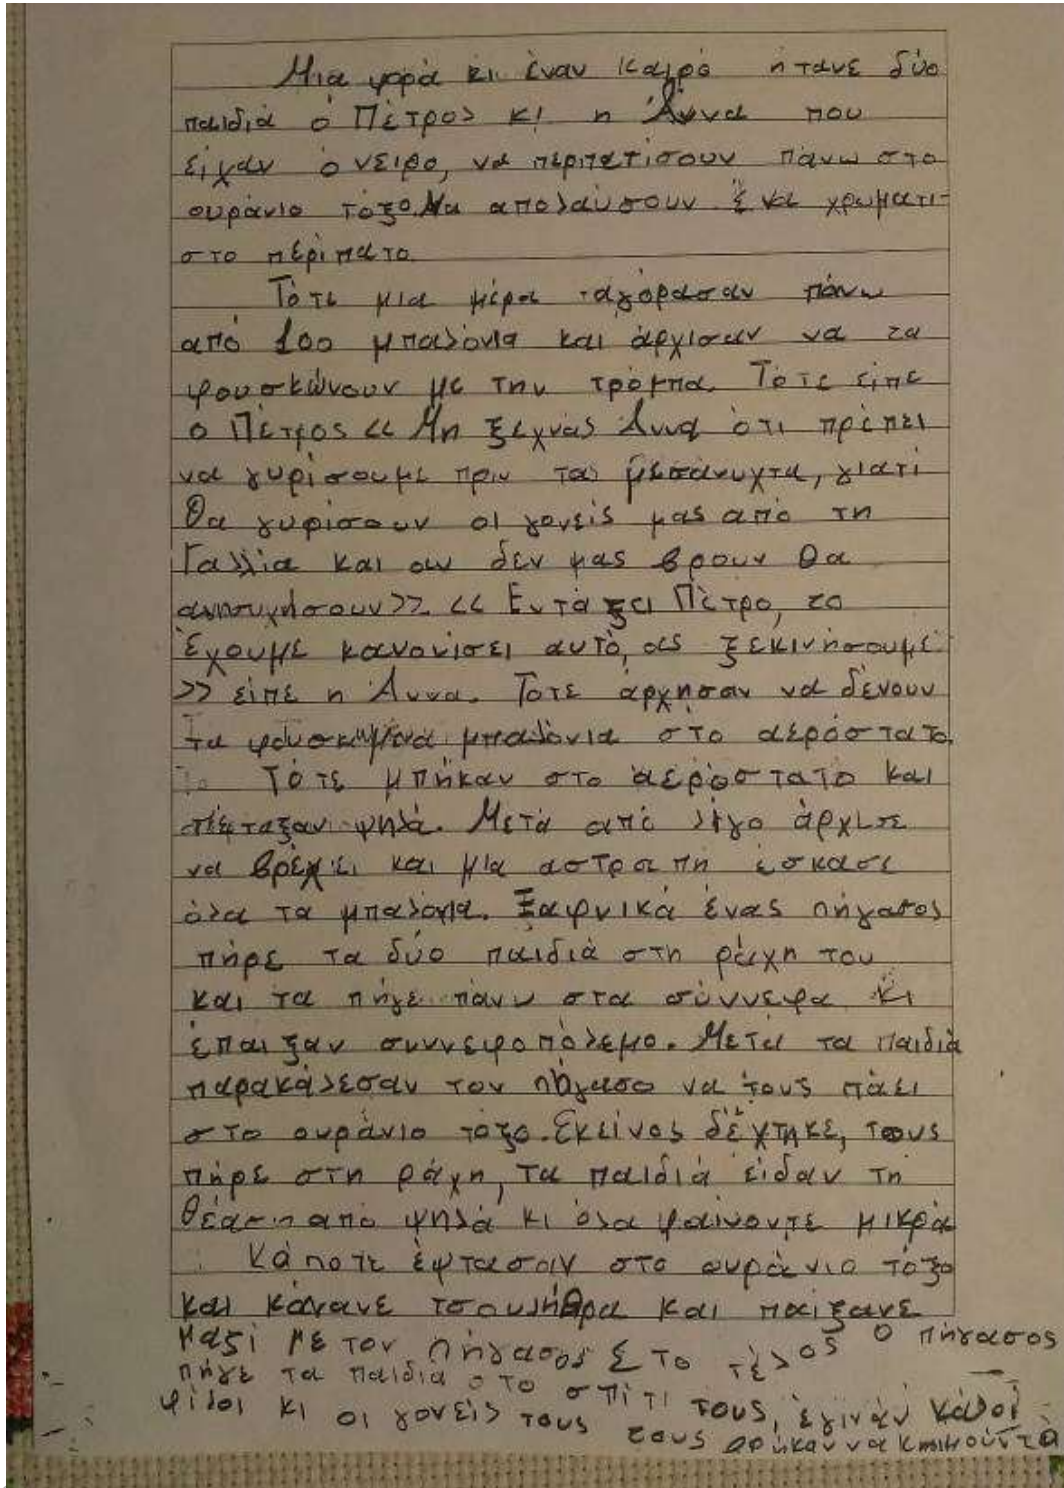 Μια φορά κι έναν καιρό ήτανε δύο
παιδιά ο Πέτρος κι η Άννα που
είχαν όνειρο, να περπατίσουν πάνω στο
ουράνιο τόξο. Να απολαύσουν ένα χρωματι-
στο περίπατο
Τότε μια μέρα αγόρασαν πάνω
από 100 μπαλόνια και άρχισαν να τα
φουσκώνουν με την τρόμπα. Τότε είπε
ο Πέτρος << Μη ξεχνάς Άννα ότι πρέπει
να γυρίσουμε πριν τα μεσάνυχτα, γιατί
θα γυρίσουν οι γονείς μας από τη
Γαλλία και αν δεν μας βρουν θα
ανησυχήσουν >> << Εντάξει Πέτρο, το
έχουμε κανονίσει αυτό, ας ξεκινήσουμε
>> είπε η Άννα. Τότε άρχησαν να δένουν
τα φουσκωμένα μπαλόνια στο αερόστατο.
Τότε μπήκαν στο αερόστατο και
πέταξαν ψηλά. Μετά από λίγο άρχισε
να βρέχει και μια αστραπή έσκασε
όλα τα μπαλόνια. Ξαφνικά ένας πήγασος
πήρε τα δύο παιδιά στη ράχη του
και τα πήγε πάνω στα σύννεφα κι
έπαιξαν συννεφοπόλεμο. Μετά τα παιδιά
παρακάλεσαν τον πήγασο να τους πάει
στο ουράνιο τόξο. Εκείνος δέχτηκε, τους
πήρε στη ράχη, τα παιδιά είδαν τη
θέα από ψηλά κι όλα φαίνοντε μικρά
Κάποτε έφτασαν στο ουράνιο τόξο
και κάνανε τσουλήθρα και παίξανε
μαζί με τον πήγασος Στο τέλος ο πήγασος
πήγε τα παιδιά στο σπίτι τους, έγιναν καλοί
φίλοι κι οι γονείς τους τους βρήκαν να κοιμούντε